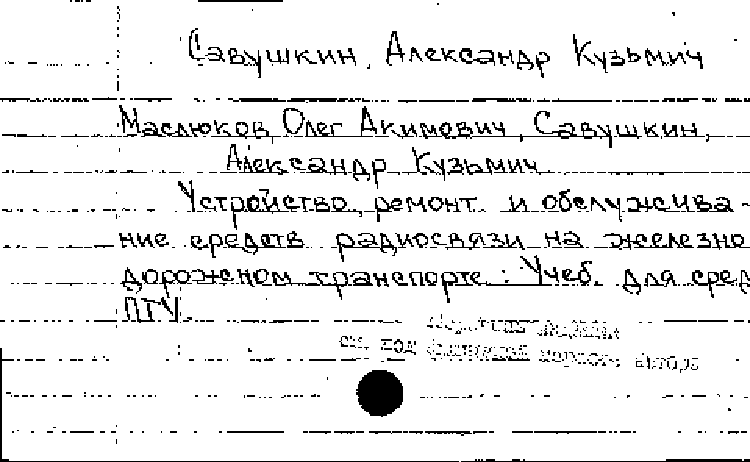 Савушкин, Александр Кузьмич
Маслюков, Олег Акимович, Савушкин,
Александр Кузьмич
Устройство, ремонт и обслужива-
ние средств радиосвязи на железно
дорожном транспорте : Учеб. для сред
ПТУ.
см. под фамилией первого автора